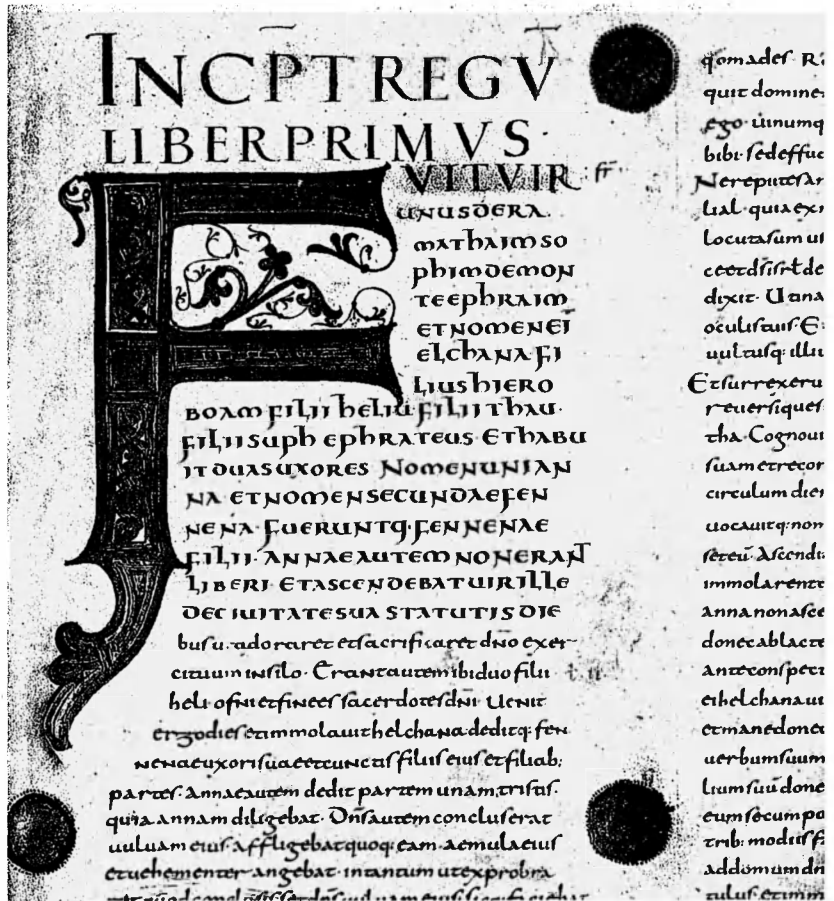 INCPT REGU
LIBER PRIMUS
FUIT UIR
UNUS DE RA
MATHAIM SO
PHIM DE MON
TE EPHRAIM
ET NOMEN EI
ELCHANA FI
LIUS HIERO
BOAM FILII HELIU FILII THAU.
FILII SUPH EPHRATEUS ET HABU
IT DUAS UXORES NOMEN UNI AN
NA ET NOMEN SECUNDAE FEN
NENA. FUERUNTQ. FENNENAE
FILII. ANNAE AUTEM NON ERANT
LIBERI. ET ASCENDEBAT UIR ILLE
DE CIUITATE SUA STATUTIS DIE
bus. ut adoraret et sacrificaret dno exer
cituum in silo. Erant autem ibi duo filii
heli ofni et finees sacerdotes dni. Uenit
ergo dies et immolauit helchana. deditq; fen
nenae uxori suae et cunctis filiis eius et filiab;
partes. Annae autem dedit partem unam tristis.
quia annam diligebat. Dns autem concluserat
uuluam eius. affligebat quoq; eam aemula eius
et uehementer angebat. in tantum ut exprobra
ret quod conclusisset dns uuluam eius. sic faciebat
qomades. R
quit domine
ego. uinumq
bibi. sed effuc
Ne reputes an
lial. quia ex
locuta sum us
ceet ds isrl de
dixit. Utina
oculis tuis. E
uultusq; illiu
Et surrexeru
reuersique s
tha. Cognoui
suam et recor
circulum die
uocauitq; nom
set eu. Ascendi
immolaret
anna non asce
donec ablacte
ante conspect
ei helchana ui
et mane donec
uerbum suum
lium suu done
eum secum po
trib; modiis f
ad domum dn
tulus. et imm